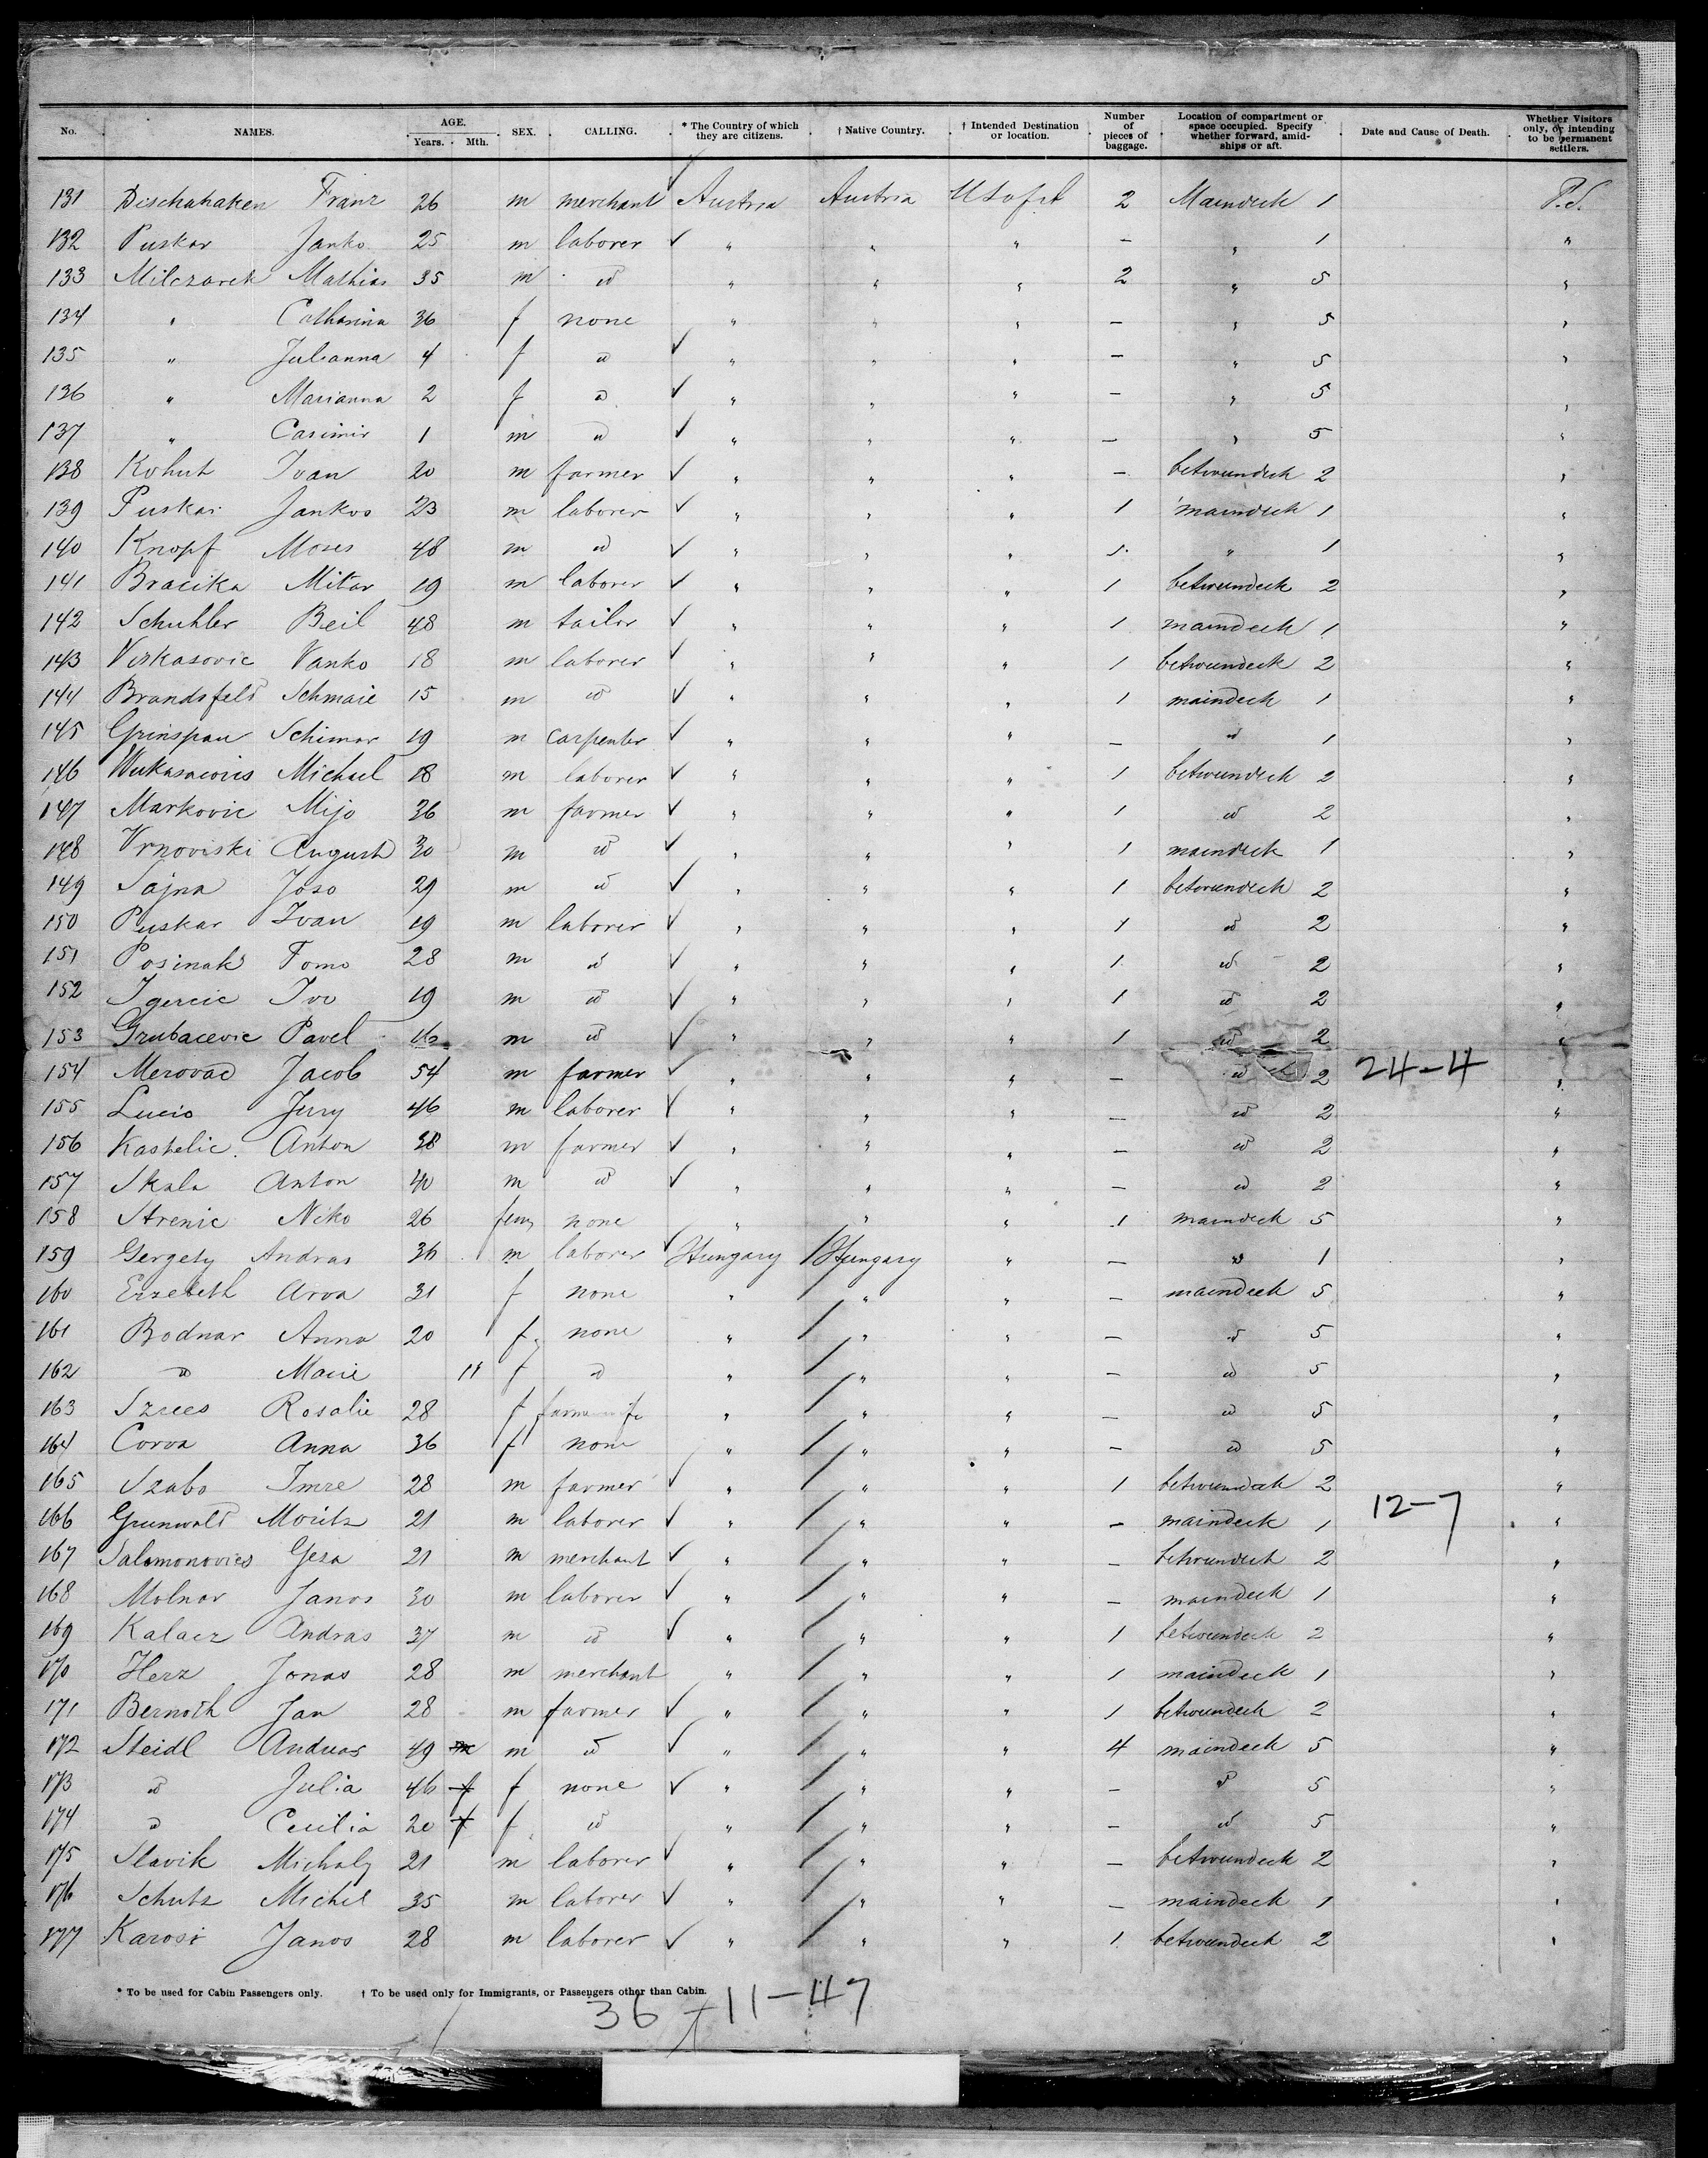 No. NAMES. AGE. Years. Mth. SEX. CALLING. * The Country of which they are citizens. † Native Country. † Intended Destination or location. Number of pieces of baggage. Location of compartment or space occupied. Specify whether forward, amidships or aft. Date and Cause of Death. Whether Visitors only, or intending to be permanent settlers.
131 Franz 26 m merchant Austria Austria U S of A 2 Maindeck 1 P.S.
132 Puskar Janko 25 m laborer ✓ " " " - " 1 "
133 Milczarek Mathias 35 m id " " " 2 " 5 "
134 " Catharina 36 f none " " " - " 5 "
135 " Julianna 4 f id ✓ " " " - " 5 "
136 " Marianna 2 f id ✓ " " " - " 5 "
137 " Casimir 1 m id ✓ " " " - " 5 "
138 Kohut Ivan 20 m farmer ✓ " " " - betweendeck 2 "
139 Puskar Jankos 23 m laborer ✓ " " " 1 maindeck 1 "
140 Knopf Moses 48 m id ✓ " " " 1 " 1 "
141 Bracika Mitar 19 m laborer ✓ " " " 1 betweendeck 2 "
142 Schuhler Beil 48 m tailor ✓ " " " 1 maindeck 1 "
143 Virkasovic Vanko 18 m laborer ✓ " " " 1 betweendeck 2 "
144 Brandsfeld Schmaie 15 m id ✓ " " " 1 maindeck 1 "
145 Grinspan Schimar 19 m carpenter ✓ " " " - id 1 "
146 Michael 18 m laborer ✓ " " " 1 betweendeck 2 "
147 Markovic Mijo 36 m farmer ✓ " " " 1 id 2 "
148 Vrnoviski August 30 m id ✓ " " " 1 maindeck 1 "
149 Sajna Joso 29 m id ✓ " " " 1 betweendeck 2 "
150 Puskar Ivan 19 m laborer ✓ " " " 1 id 2 "
151 Posinak Tomo 28 m id ✓ " " " 1 id 2 "
152 Igercic Ivo 19 m id ✓ " " " 1 id 2 "
153 Grubacevic Pavel 16 m id ✓ " " " 1 id 2 "
154 Merovad Jacob 54 m farmer ✓ " " " - id 2 24-4 "
155 Lucio Jury 46 m laborer ✓ " " " - id 2 "
156 Kastelic Anton 38 m farmer ✓ " " " - id 2 "
157 Skala Anton 40 m id ✓ " " " - id 2 "
158 Strenic Niko 26 fem none " " " 1 maindeck 5 "
159 Gergely Andras 36 m laborer ✓ Hungary Hungary " - id 1 "
160 Erzebeth Arva 31 f none " " " - maindeck 5 "
161 Bodnar Anna 20 f none " " " - id 5 "
162 id Marie 11 f id " " " - id 5 "
163 Szucs Rosalie 28 f " " " - id 5 "
164 Corva Anna 36 f none " " " - id 5 "
165 Szabo Imre 28 m farmer ✓ " " " 1 betweendeck 2 "
166 Grunwald Moritz 21 m laborer ✓ " " " - maindeck 1 12-7 "
167 Salamonovics Gesa 21 m merchant ✓ " " " - betweendeck 2 "
168 Molnar Janos 30 m laborer ✓ " " " - maindeck 1 "
169 Kalacz Andras 37 m id ✓ " " " 1 betweendeck 2 "
170 Herz Jonas 28 m merchant " " " 1 maindeck 1 "
171 Bernoth Jan 28 m farmer ✓ " " " 1 betweendeck 2 "
172 Steidl Andreas 49 m m id ✓ " " " 4 maindeck 5 "
173 id Julia 46 f f none ✓ " " " - id 5 "
174 id Cecilia 20 f f id " " " - id 5 "
175 Slavik Michaly 21 m laborer ✓ " " " - betweendeck 2 "
176 Schutz Michel 35 m laborer ✓ " " " - maindeck 1 "
177 Karosi Janos 28 m laborer ✓ " " " 1 betweendeck 2 "
* To be used for Cabin Passengers only. † To be used only for Immigrants, or Passengers other than Cabin.
36 + 11 - 47